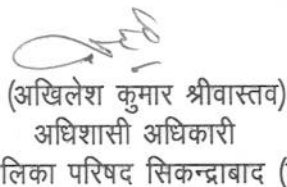 (अखिलेश कुमार श्रीवास्तव)
अधिशासी अधिकारी
लिका परिषद सिकन्द्राबाद (